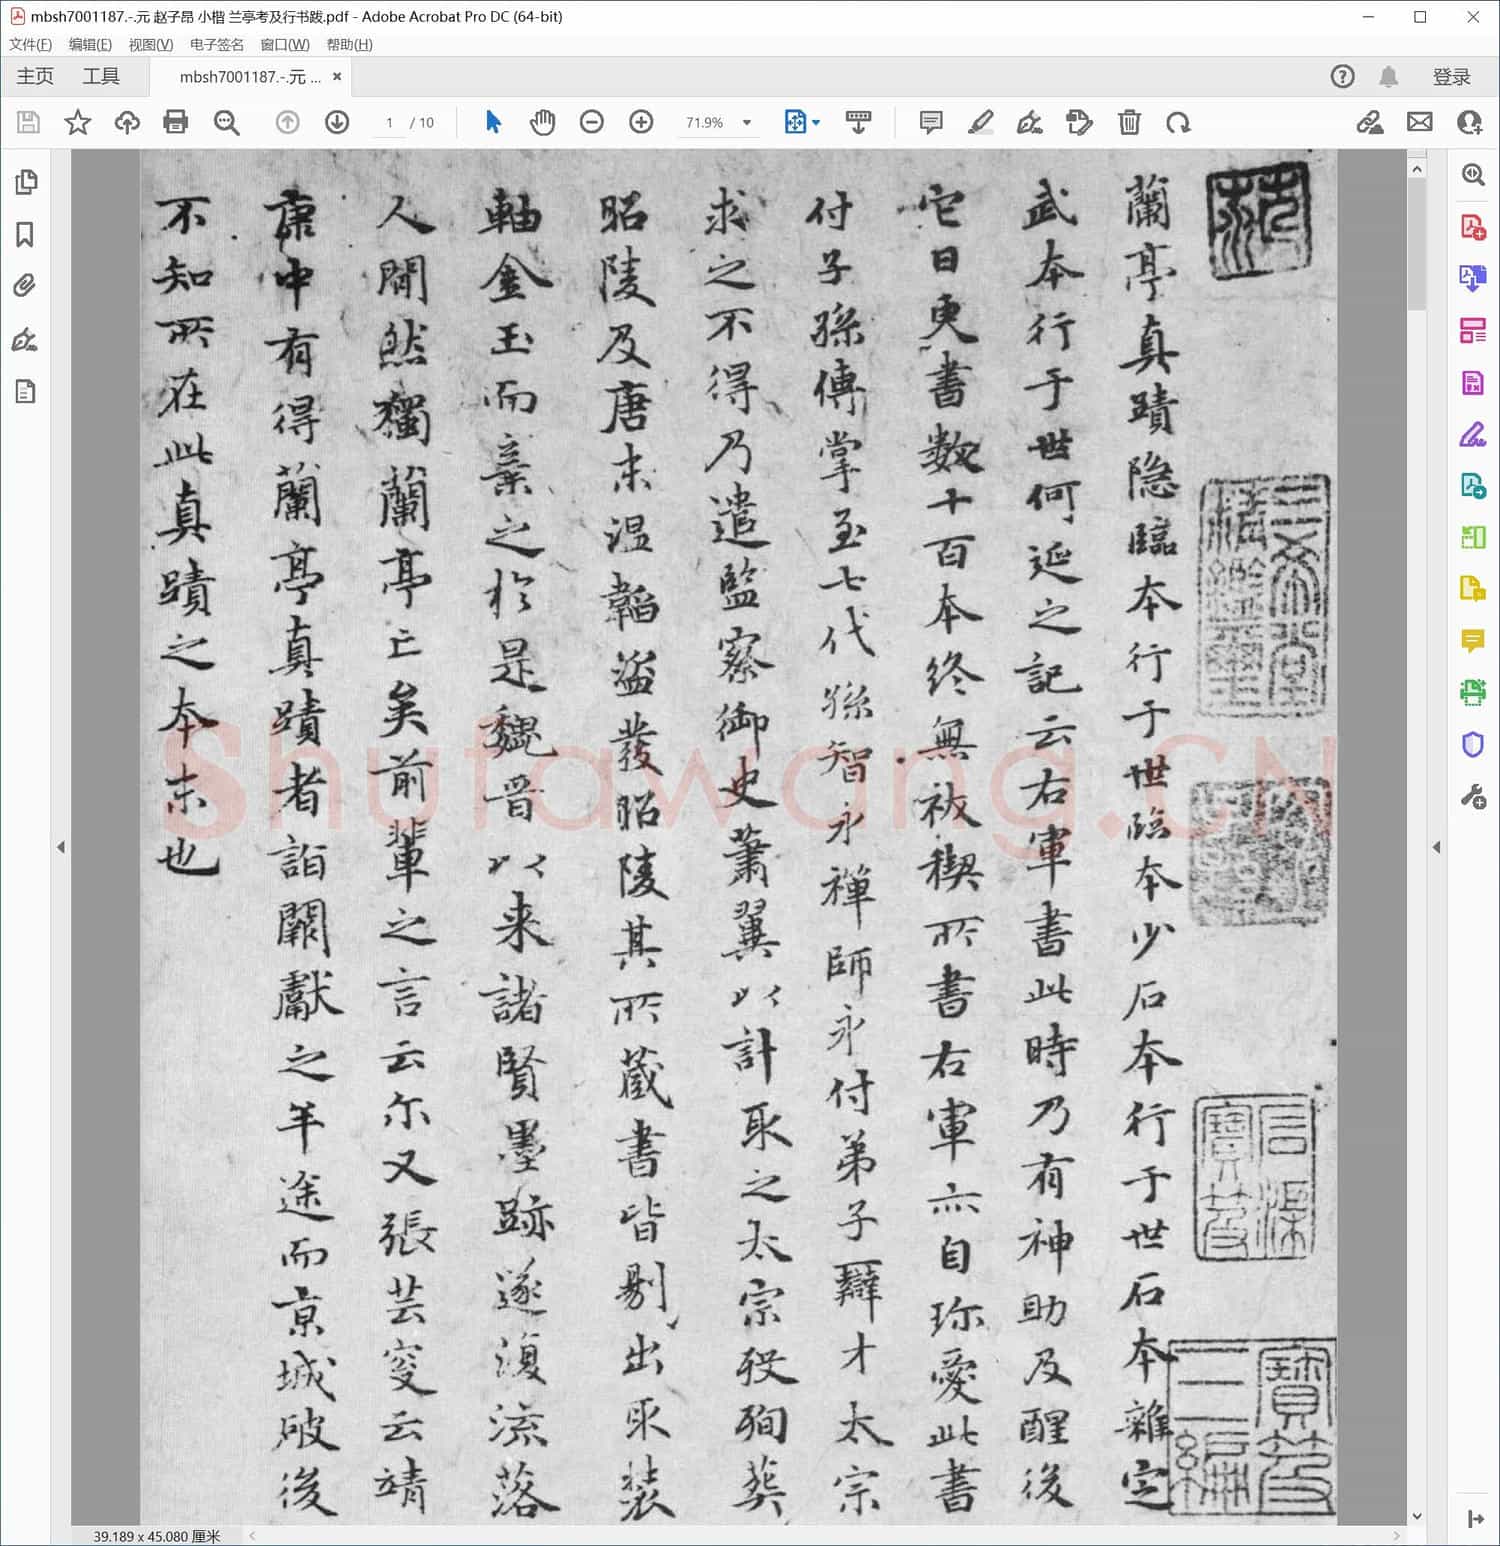 mbsh7001187.-.元 赵子昂 小楷 兰亭考及行书跋.pdf - Adobe Acrobat Pro DC (64-bit)
文件(F) 编辑(E) 视图(V) 电子签名 窗口(W) 帮助(H)
主页 工具 mbsh7001187.-.元 ... × 登录
1 / 10 71.9%
蘭亭真蹟隐臨本行于世臨本少石本行于世石本雜定
武本行于世何延之記云右軍書此時乃有神助及醒後
它日更書數十百本終無祓禊所書右軍亦自珎愛此書
付子孫傳掌至七代孫智永禪師永付弟子辯才太宗
求之不得乃遣監察御史蕭翼以計取之太宗殁殉葬
昭陵及唐末温韜盜發昭陵其所蔵書皆剔出取装
軸金玉而棄之於是魏晉以来諸賢墨跡遂復流落
人間然獨蘭亭亡矣前輩之言云尔又張芸叟云靖
康中有得蘭亭真蹟者詣闕獻之半途而京城破後
不知所在此真蹟之本末也
三希堂
精鑑璽
寶笈
三編
Shufawang.CN
39.189 x 45.080 厘米